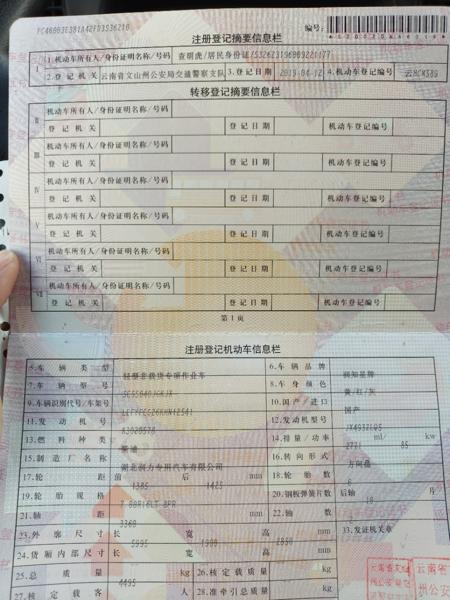 编号:
注册登记摘要信息栏
I
1.机动车所有人/身份证明名称/号码
2.登记机关 云南省文山州公安局交通警察支队 3.登记日期 2019-04-12 4.机动车登记编号
转移登记摘要信息栏
II 机动车所有人/身份证明名称/号码
登记机关 登记日期 机动车登记编号
III 机动车所有人/身份证明名称/号码
登记机关 登记日期 机动车登记编号
IV 机动车所有人/身份证明名称/号码
登记机关 登记日期 机动车登记编号
V 机动车所有人/身份证明名称/号码
登记机关 登记日期 机动车登记编号
VI 机动车所有人/身份证明名称/号码
登记机关 登记日期 机动车登记编号
VII 机动车所有人/身份证明名称/号码
登记机关 登记日期 机动车登记编号
第1页
注册登记机动车信息栏
5.车辆类型 轻型非载货专项作业车 6.车辆品牌 润知星牌
7.车辆型号 8.车身颜色 黄/红/灰
9.车辆识别代号/车架号 10.国产/进口 国产
11.发动机号 12.发动机型号
13.燃料种类 柴油 14.排量/功率 2771 ml/ 85 kw
15.制造厂名称 湖北润力专用汽车有限公司 16.转向形式 方向盘
17.轮距 前 1385 后 1425 mm 18.轮胎数 6
19.轮胎规格 20.钢板弹簧片数 后轴 片
21.轴距 3360 mm 22.轴数
23.外廓尺寸 长 5995 宽 高 mm 33.发证机关章
24.货厢内部尺寸 长 宽 高 mm
25.总质量 4495 kg 26.核定载质量 kg
27.核定载客 人 28.准牵引总质量 kg